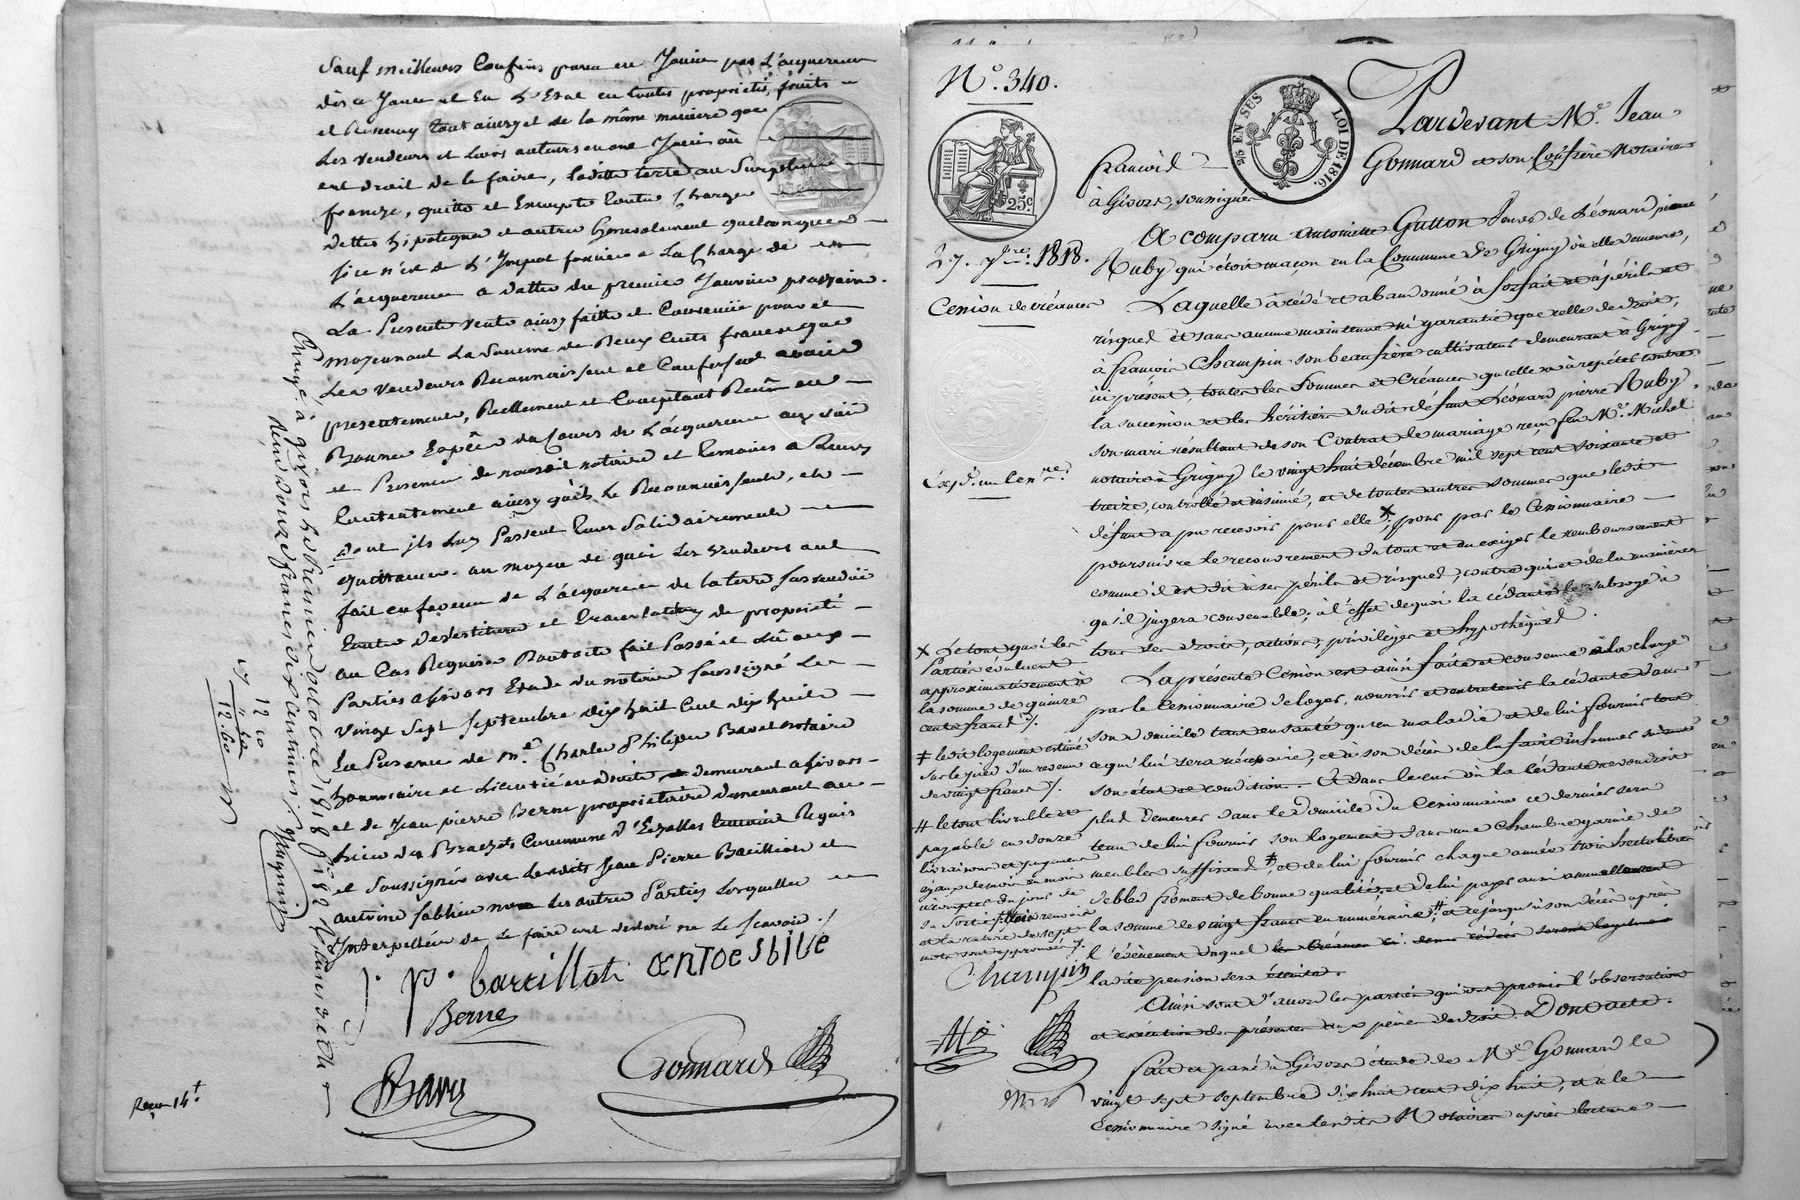 Sauf meilleurs Confins pour en Jouir par L'acquereur
dès ce Jour et En disposer en toutes propriété, fruits
et Revenus tout ainsy et de la même maniere que
Les vendeurs et Leurs auteurs en ont Joui ou
ont droit de le faire, Laditte terre au Surplus
franche, quitte et Exempte toutte Charge
dettes hipoteque et autres Generalement quelconques
Si ce n'est de L'Impot foncier a La Charge de
L'acquereur a datter du premier Janvier prochain.
La Presente vente ainsy faitte et Convenüe pour et
moyennant La Somme de Deux Cents francs que
Les vendeurs Reconnoissent et Confessent avoir
presentement, Reellement et Comptant Reçu en
Bonnes Espêces du Cours de L'acquereur aux vüe
et Presence de nousdit notaire et temoins a Leurs
Contentement ainsy qu'ils Le Reconnoissent, et
dont ils Luy Passent Leur Solidairement
quittance. au moyen de quoi Les vendeurs ont
fait en faveur de L'acquereur de La terre Susvendüe
toutte devestiture et translation de propriété
au Cas Requise Dont acte fait Passé et Lû aux
Parties a Givors Etude du notaire Soussigné Le
vingt Sept Septembre dix huit Cent dix huit
En Presence de Me Charles Philippe Bavet notaire
honnoraire et Licentié en droit demeurant a Givors
et de Jean pierre Berne proprietaire demeurant au
Lieu des Commune d'Echallas Requis
et Soussignés avec Lesdits Jean Pierre Barilliot et
antoine Sablier non Les autres Parties Lesquelles
Interpellées de Le faire ont declaré ne Le Scavoir ./.
J. P. barillot antoe sblie
Berne
Gonnard
Reçu 14f
Enregé à givors le huit octobre 1818 fo 82
Reçu douze francs dix centimes. Magnin
12 10
12 60
No. 340.
25 EN SUS
LOI DE 1816.
25c
27. 7bre. 1818.
Cession de créances
Expd. un Cenre.
Pardevant Me. Jean
François Gonnard et son Confrère Notaires
à Givors, soussignés
A comparu Antoinette Gutton Veuve de Léonard pierre
Ruby, qui étoit maçon en la Commune de Grigny où elle demeure,
Laquelle a cédé et abandonné à forfait et à périls et
risques et sans aucune maintenue ni garantie que celle de droit,
à François Champin son beau frère cultivateur demeurant à Grigny
ici présent toutes les Sommes et Créances qu'elle a à répéter contre
la succession et les héritiers dudit défunt Léonard pierre Ruby
son mari résultant de son Contrat de mariage reçu feu Me. Michel
notaire à Grigny le vingt huit décembre mil sept cent soixante et
treize, contrôlé et insinué, et de toutes autres sommes que ledit
défunt a pu recevoir pour elle x; pour par le Cessionnaire
poursuivre le recouvrement du tout et en exiger le remboursement
comme il est dit à ses périls et risques, contre qui et de la manière
qu'il jugera convenable; à l'effet de quoi la cédante le subroge à
tous ses droits, actions, privilèges et hypothèques.
La présente Cession est ainsi faite et convenue à la charge
par le Cessionnaire de loger, nourrir et entretenir la cédante dans
son domicile tant en santé qu'en maladie et de lui fournir tout
ce qui lui sera nécessaire, et à son décès de la faire inhumer suivant
son état et condition. Et dans le cas où la Cédante ne voudroit
plus demeurer dans le domicile du Cessionnaire ce dernier sera
tenu de lui fournir son logement dans une Chambre garnie de
meubles suffisans ‡, et de lui fournir chaque année trois hectolitres
de bled froment de bonne qualité, et de lui payer aussi annuellement
la somme de vingt francs en numéraire ⧺ et ce jusqu'à son décès après
l'évènement duquel les Créances ci-dessus cédées seront
ladite pension sera éteinte.
Ainsi sont d'accord les parties qui ont promis l'observation
et exécution des présentes aux peines de droit. Dont acte.
Fait et passé à Givors étude de Me Gonnard le
vingt sept septembre dix huit cent dix huit, et a le
Cessionnaire signé avec lesdits Notaires après lecture
x Le tout que les
Parties évaluent
approximativement à
la somme de quinze
cents francs ./.
‡ ledit logement estimé
sur le pied d'un revenu
de vingt francs ./.
⧺ le tout livrable et
payable en douze
livraisons et payemens
égaux de mois en mois
à compter du jour de
sa sortie,
et la rature de sept
mots sont approuvés ./.
Champin